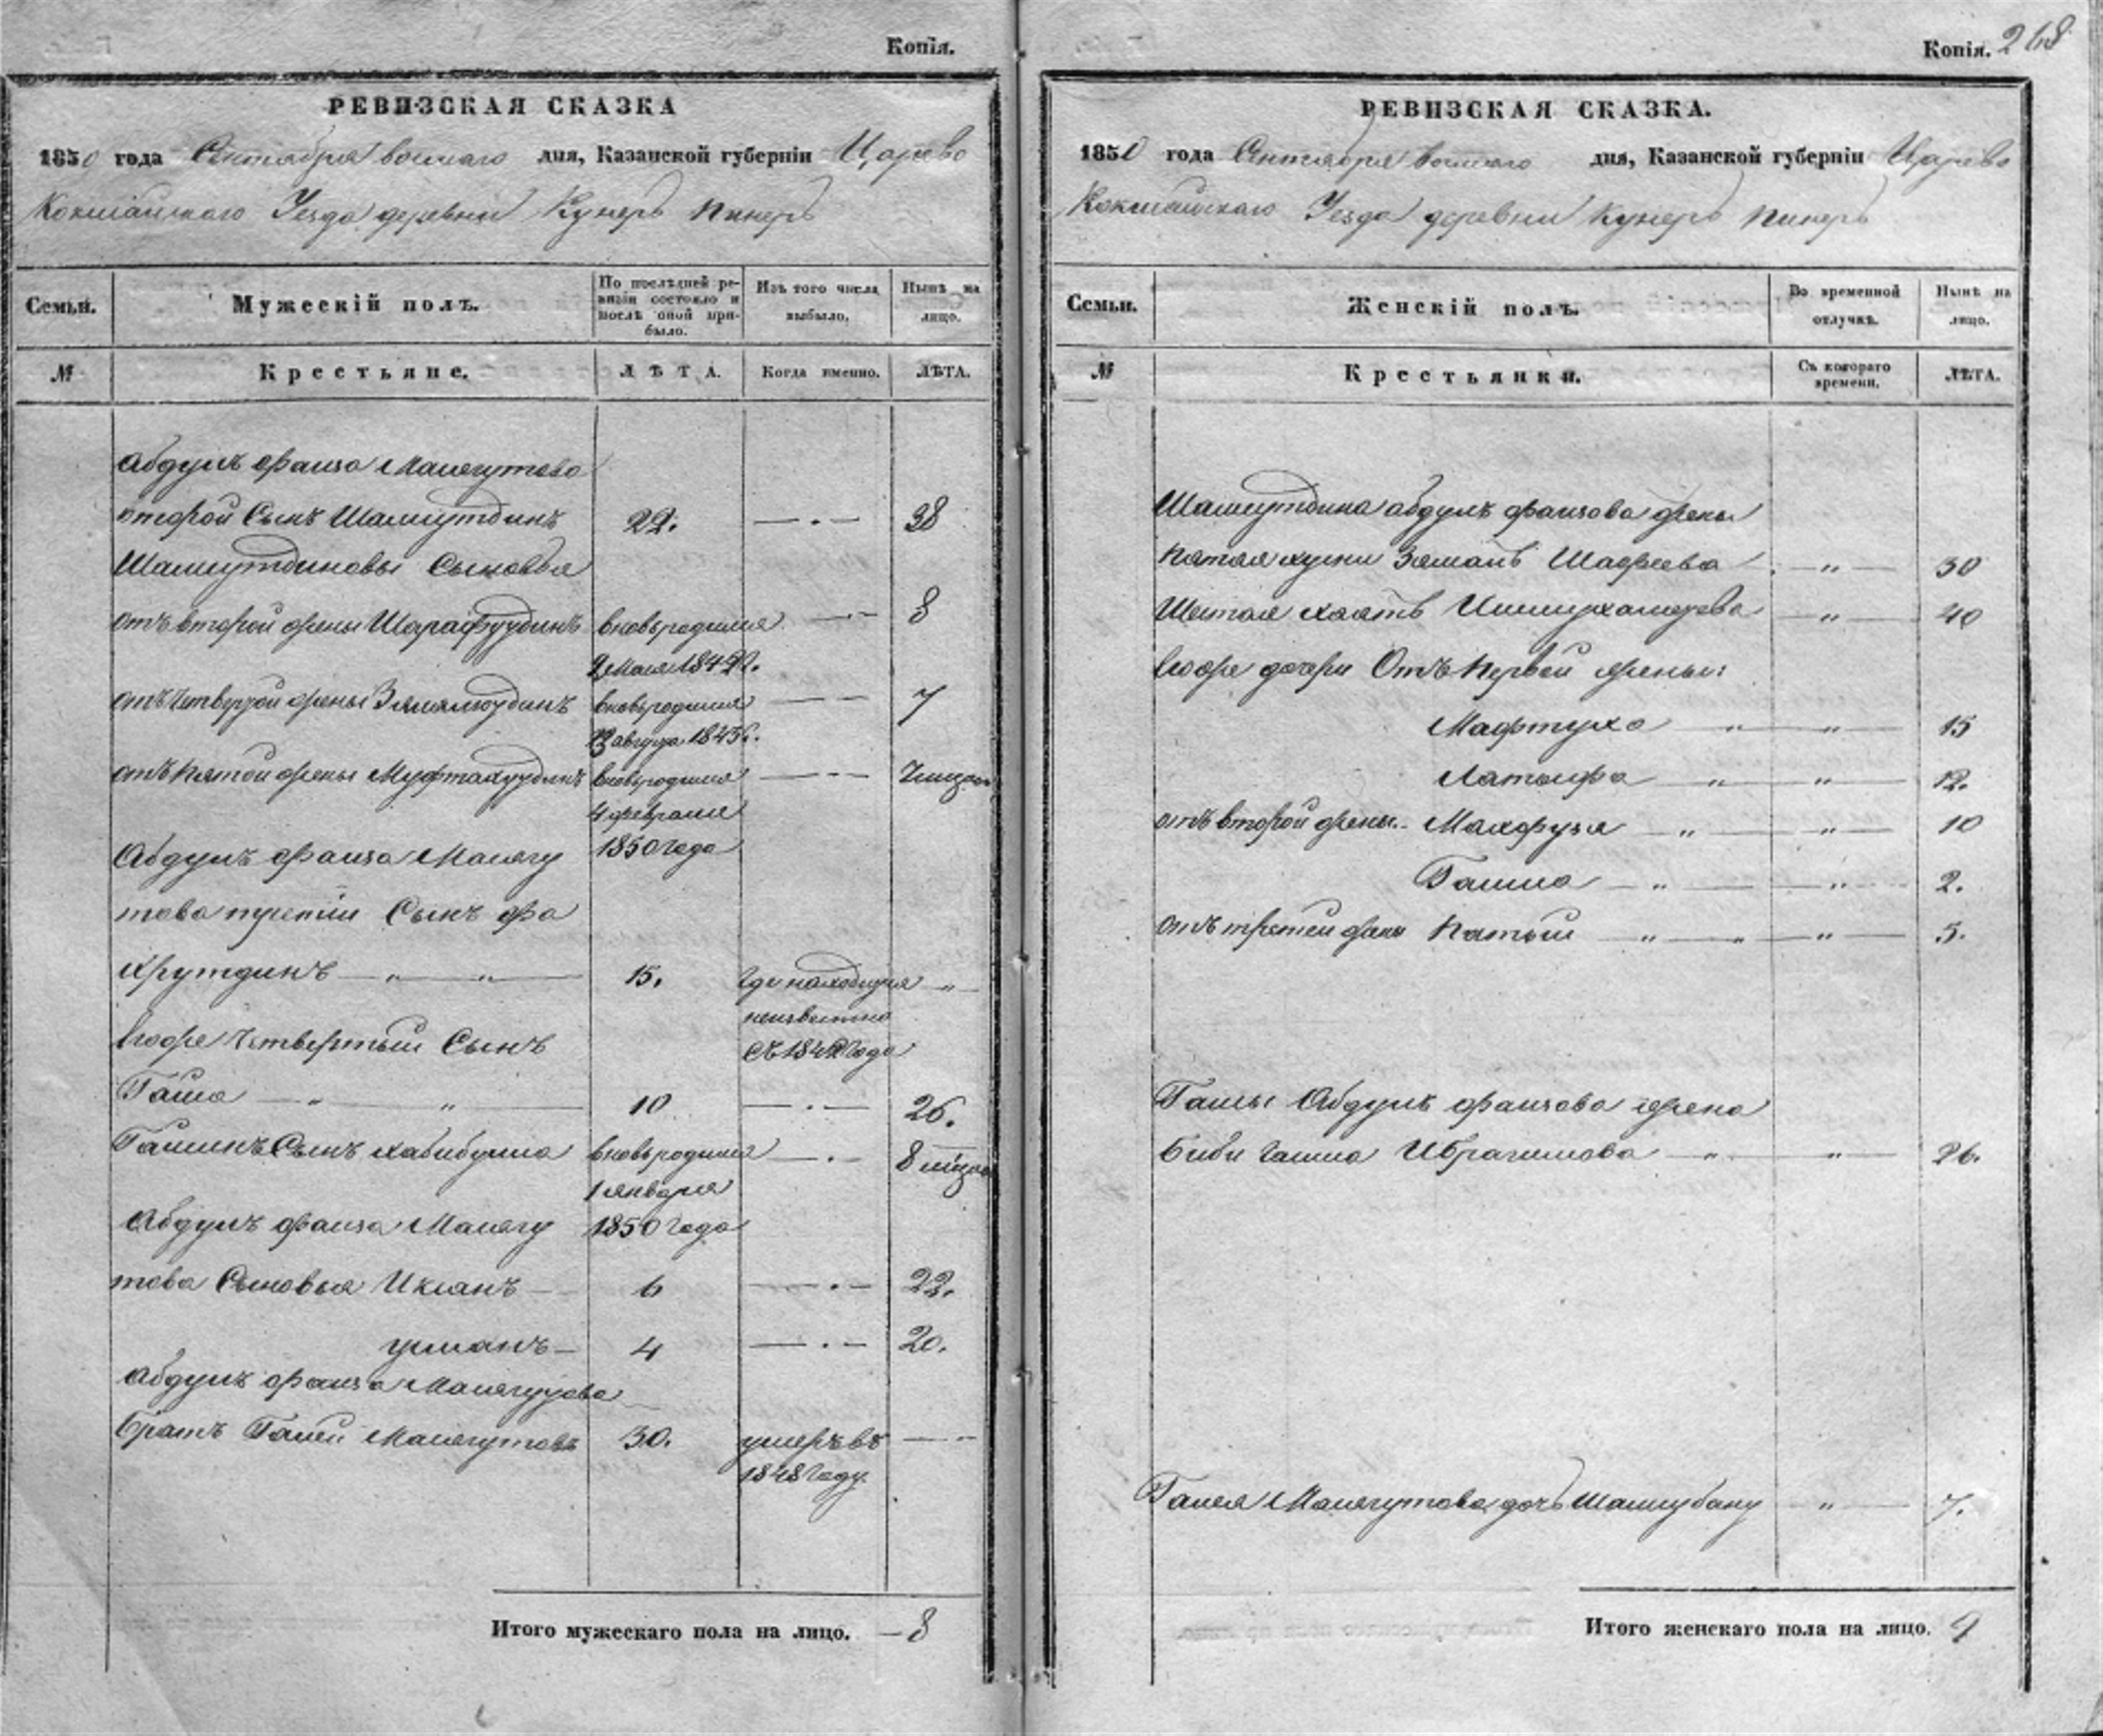 Копія.
РЕВИЗСКАЯ СКАЗКА
1850 года Сентября восмаго дня, Казанской губерніи Царево
Кокшайскаго Уезда деревни Кунеръ Пинеръ
Семьи.
Мужескій полъ.
По послѣдней ре-
визіи состояло и
послѣ оной при-
было.
Изъ того числа
выбыло.
Нынѣ на
лицо.
№
Крестьяне.
ЛѢТА.
Когда именно.
ЛѢТА.
Абдулъ фаиза Манягутова
второй Сынъ Шамсутдинъ 22. 38
Шамсутдиновы Сыновья
отъ второй жены Шарафуудинъ вновьродился 8
Мая 184
отъ четвертой жены вновьродился 7
августа 1843
отъ пятой жены Муфтахуудинъ вновьродился
4 февраля
1850 года
Абдулъ фаиза Манягу
това третий Сынъ фа
хрутдинъ — „ — „ — 15. где находится „
неизвестно
съ 184 года
Егоже четвертый Сынъ
Гайса — „ — „ — 10 26.
Сынъ хабибулла вновьродился 8 месяцов
1 января
1850 года
Абдулъ фаиза Манягу
това Сыновья Ихсанъ 6 22.
усманъ 4 20.
Абдулъ фаиза Манягутова
братъ Галей Манягутовъ 30. умеръ въ
1848 году.
Итого мужескаго пола на лицо. — 8
Копія. 268
РЕВИЗСКАЯ СКАЗКА.
1850 года Сентября восмаго дня, Казанской губерніи Царево
Кокшайскаго Уезда деревни Кунеръ Пинеръ
Семьи.
Женскій полъ.
Во временной
отлучкѣ.
Нынѣ на
лицо.
№
Крестьянки.
Съ котораго
времени.
ЛѢТА.
Шамсутдина абдулъ фаизова жены
пятая Земалъ Шафеева — „ — 30
Шестая хаятъ Ишмухаметева — „ — 40
Егоже дочери Отъ первой жены:
Мафтуха — „ — „ — 15
Латыфа — „ — „ — 12.
отъ второй жены. Махфузя — „ — „ — 10
— „ — „ — 2.
отъ третей жены — „ — „ — „ — 5.
Гайсы Абдулъ фаизова жена
Биби гайша Ибрагимова — „ — „ — 26.
Галея Манягутова дочь Шамсубану — „ — 7.
Итого женскаго пола на лицо. 9